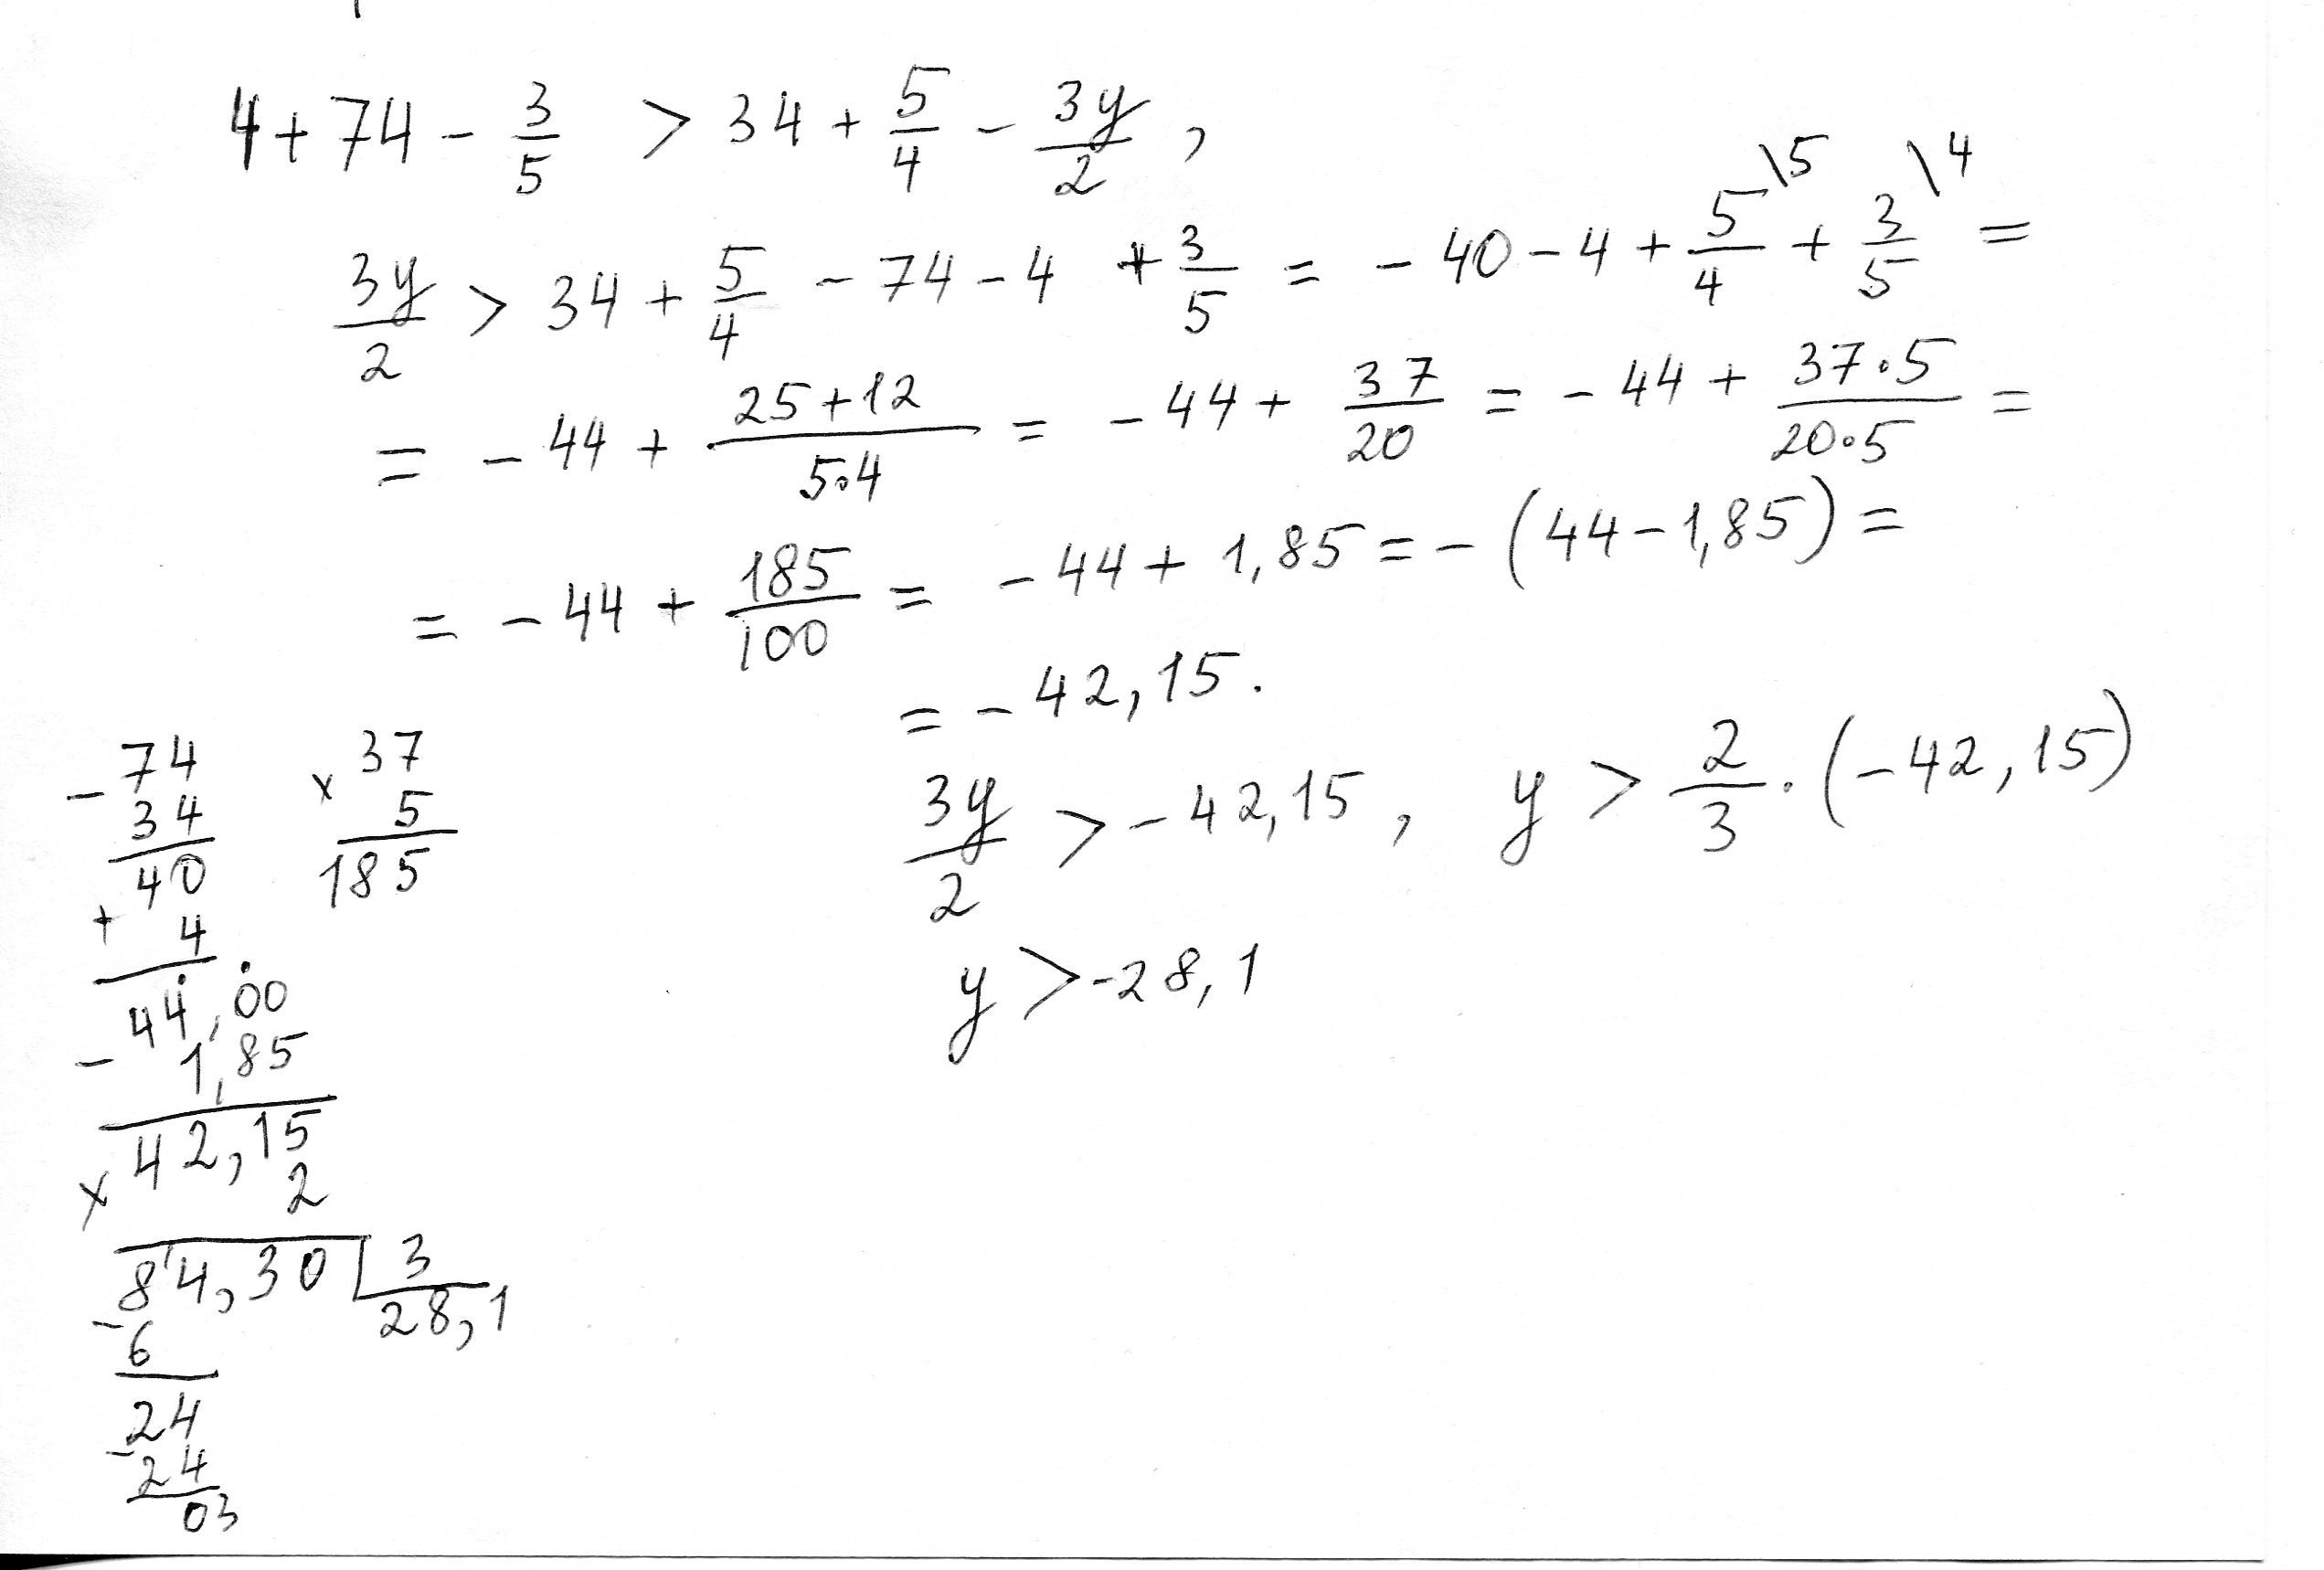 4 + 74 - 3/5 > 34 + 5/4 - 3y/2 ,
3y/2 > 34 + 5/4 - 74 - 4 + 3/5 = - 40 - 4 + 5/4 \5 + 3/5 \4 =
= - 44 + (25 + 12)/(5·4) = - 44 + 37/20 = - 44 + (37·5)/(20·5) =
= - 44 + 185/100 = - 44 + 1,85 = - (44 - 1,85) =
= - 42,15.
3y/2 > - 42,15 , y > 2/3 · (- 42,15)
y > -28,1
- 74
34
40
+ 4
44,00
- 1,85
42,15
× 2
84,30 | 3
28,1
- 6
24
- 24
03
× 37
5
185